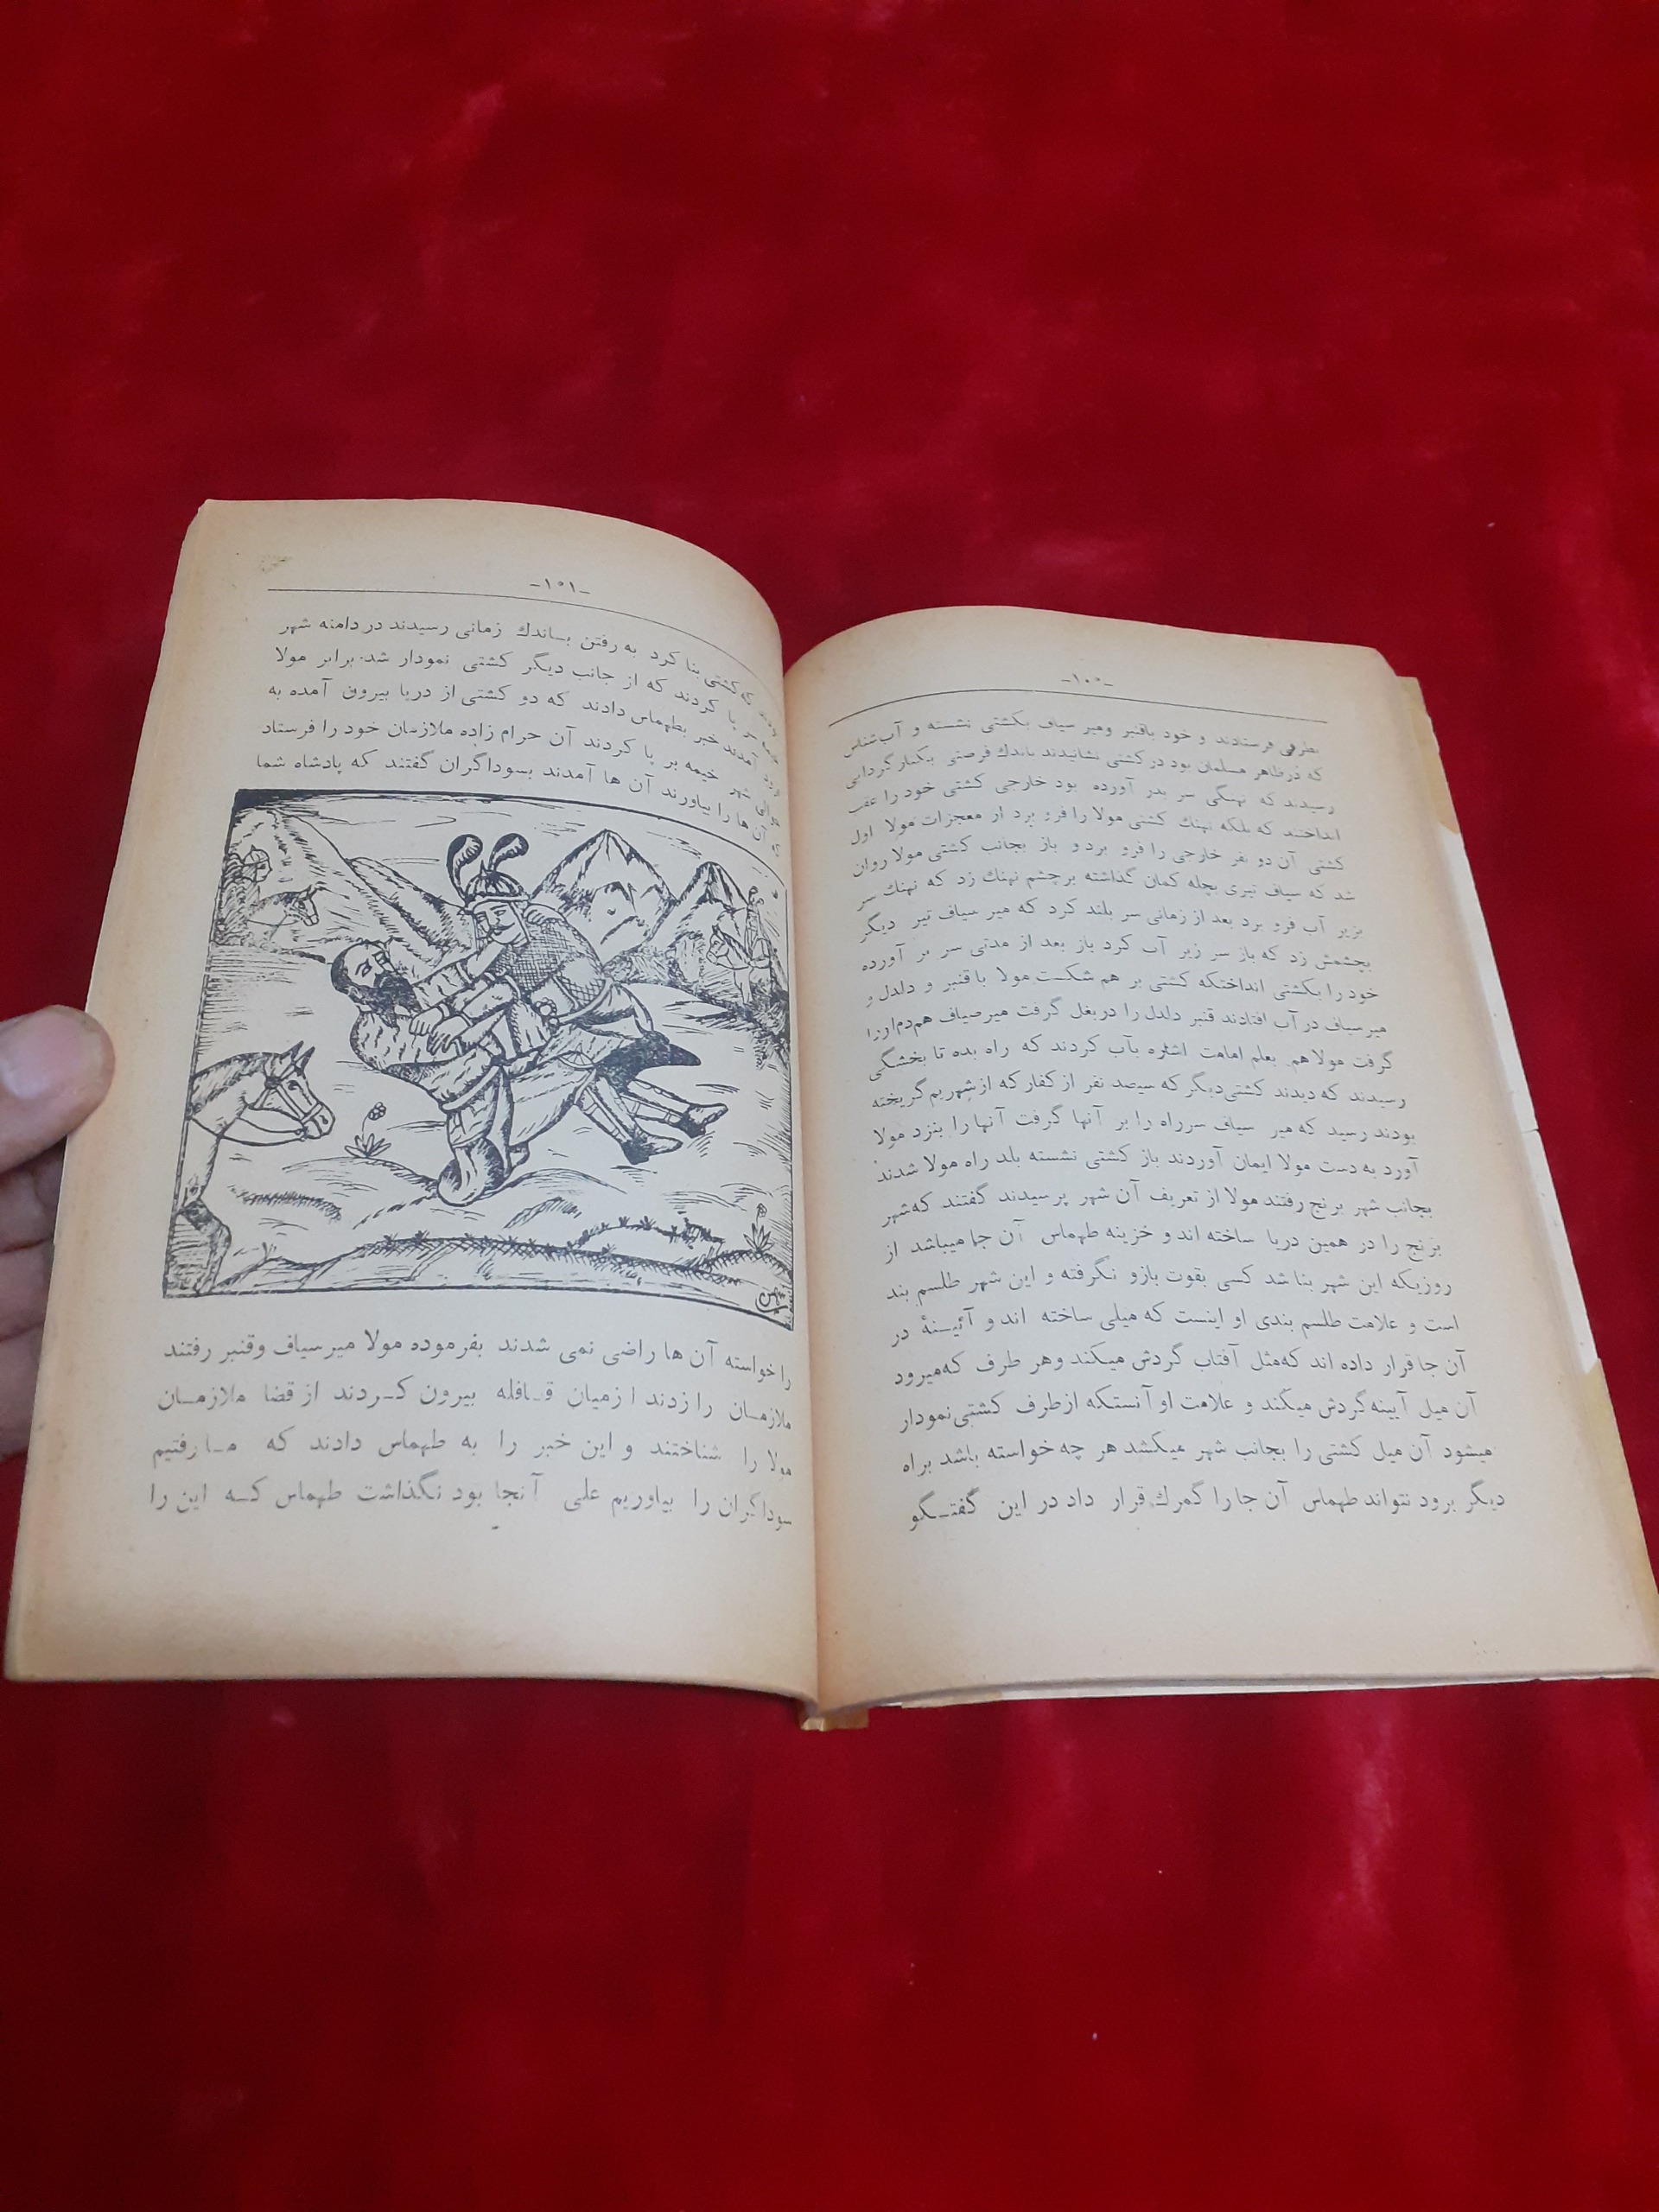 -۱۰۰-
بطرفی فرستادند و خود باقنبر ومیر سیاف بکشتی نشسته و آب‌شناس
که درظاهر مسلمان بود در کشتی نشانیدند باندك فرصتی بکنار گردابی
رسیدند که نهنگی سر بدر آورده بود خارجی کشتی خود را عقب
انداختند که بلکه نهنك کشتی مولا را فرو برد از معجزات مولا اول
کشتی آن دو نفر خارجی را فرو برد و باز بجانب کشتی مولا روان
شد که سیاف تیری بچله کمان گذاشته برچشم نهنك زد که نهنك سر
بزیر آب فرو برد بعد از زمانی سر بلند کرد که میر سیاف تیر دیگر
بچشمش زد که باز سر زیر آب کرد باز بعد از مدتی سر بر آورده
خود را بکشتی انداختکه کشتی بر هم شکست مولا با قنبر و دلدل و
میرسیاف در آب افتادند قنبر دلدل را در بغل گرفت میرصیاف هم‌دم‌اورا
گرفت مولا هم بعلم امامت اشاره بآب کردند که راه بده تا بخشگی
رسیدند که دیدند کشتی‌دیگر که سیصد نفر از کفار که از شهر گریخته
بودند رسید که میر سیاف سرراه را بر آنها گرفت آنها را بنزد مولا
آورد به دست مولا ایمان آوردند باز کشتی نشسته بلد راه مولا شدند
بجانب شهر برنج رفتند مولا از تعریف آن شهر پرسیدند گفتند که‌شهر
برنج را در همین دریا ساخته اند و خزینه طهماس آن جا میباشد از
روزیکه این شهر بنا شد کسی بقوت بازو نگرفته و این شهر طلسم بند
است و علامت طلسم بندی او اینست که میلی ساخته اند و آئینهٔ در
آن جا قرار داده اند که‌مثل آفتاب گردش میکند وهر طرف که‌میرود
آن میل آیینه گردش میکند و علامت او آنستکه ازطرف کشتی نمودار
میشود آن میل کشتی را بجانب شهر میکشد هر چه خواسته باشد براه
دیگر برود نتواند طهماس آن جا را گمرك قرار داد در این گفتـگو
-۱۰۱-
بودند که کشتی بنا کرد به رفتن بساندك زمانی رسیدند در دامنه شهر
خیمه سر پا کردند که از جانب دیگر کشتی نمودار شد برابر مولا
فرود آمدند خبر بطهماس دادند که دو کشتی از دریا بیرون آمده به
حوالی شهر خیمه بر پا کردند آن حرام زاده ملازمان خود را فرستاد
که آن ها را بیاورند آن ها آمدند بسوداگران گفتند که پادشاه شما
را خواسته آن ها راضی نمی شدند بفرموده مولا میرسیاف وقنبر رفتند
ملازمـان را زدند ازمیان قـافله بیرون کـردند از قضا ملازمـان
مولا را شناختند و این خبر را به طهماس دادند که مـا رفتیم
سوداگران را بیاوریم علی آنجا بود نگذاشت طهماس کـه این را